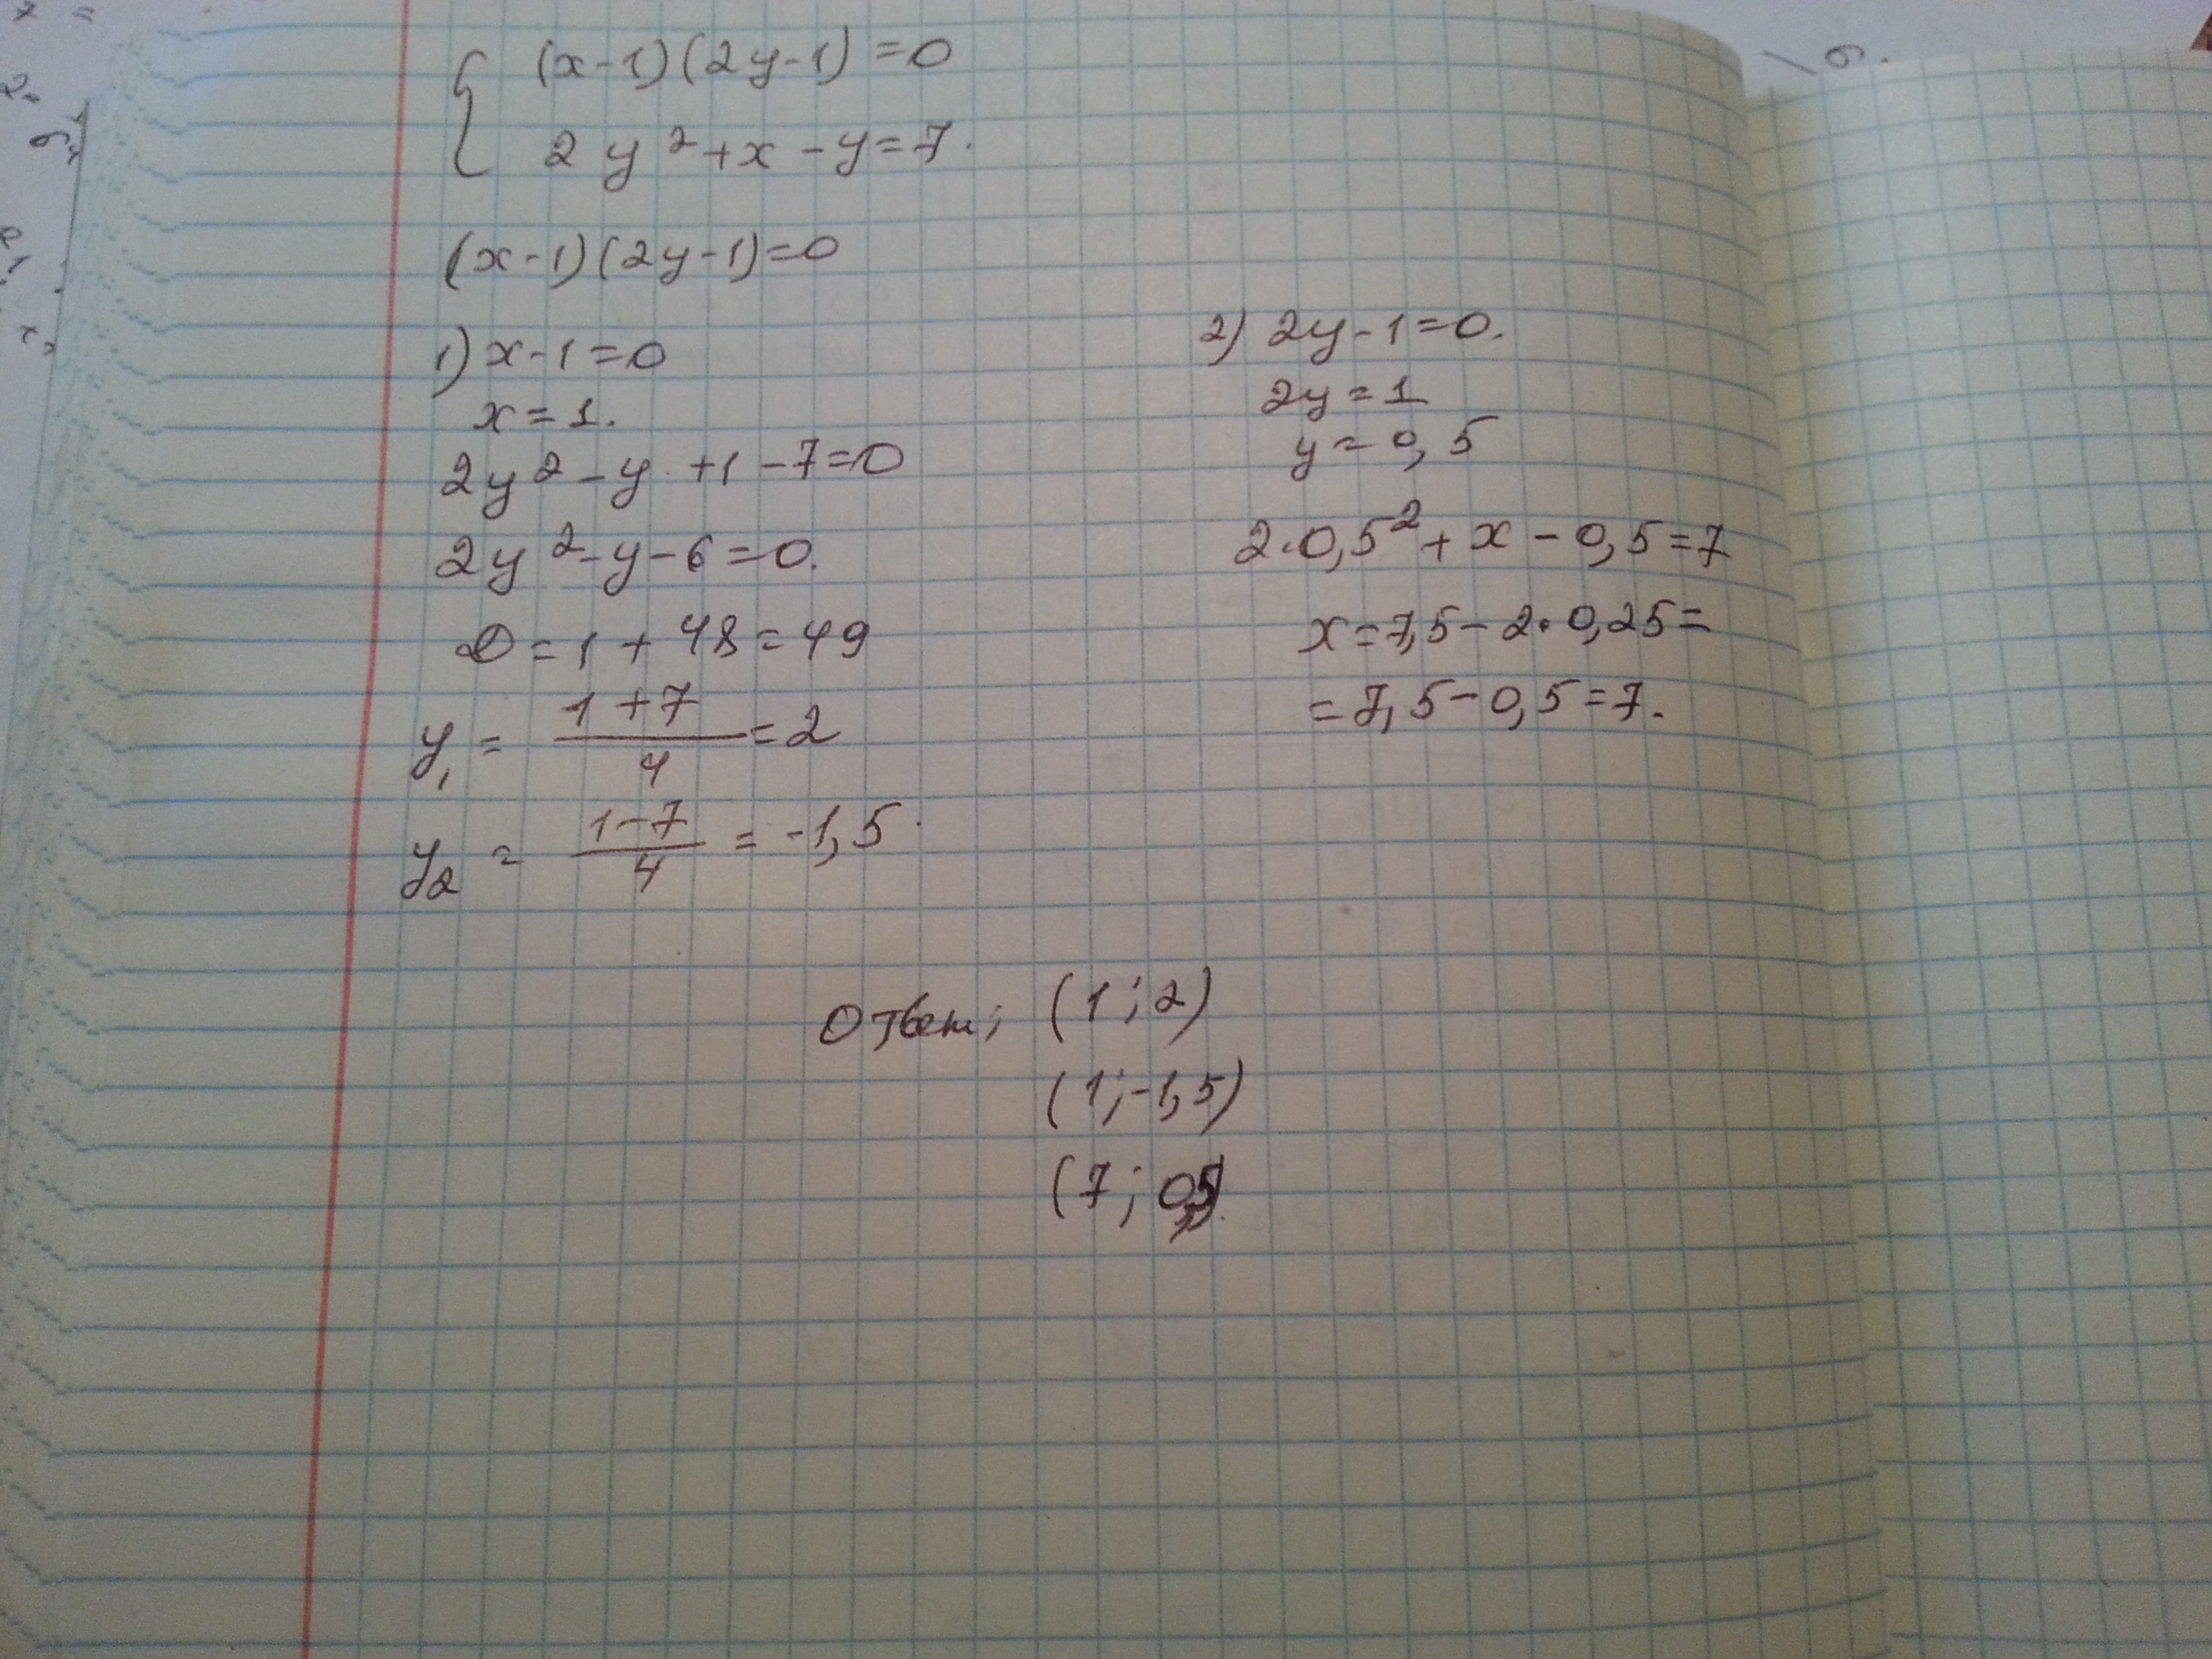 (x-1)(2y-1)=0
2y²+x-y=7.
(x-1)(2y-1)=0
1) x-1=0
x=1.
2y²-y+1-7=0
2y²-y-6=0.
D=1+48=49
y₁ = (1+7)/4 = 2
y₂ = (1-7)/4 = -1,5.
2) 2y-1=0.
2y=1
y=0,5
2·0,5²+x-0,5=7
x=7,5-2·0,25=
=7,5-0,5=7.
Ответ: (1;2)
(1;-1,5)
(7;0,5)